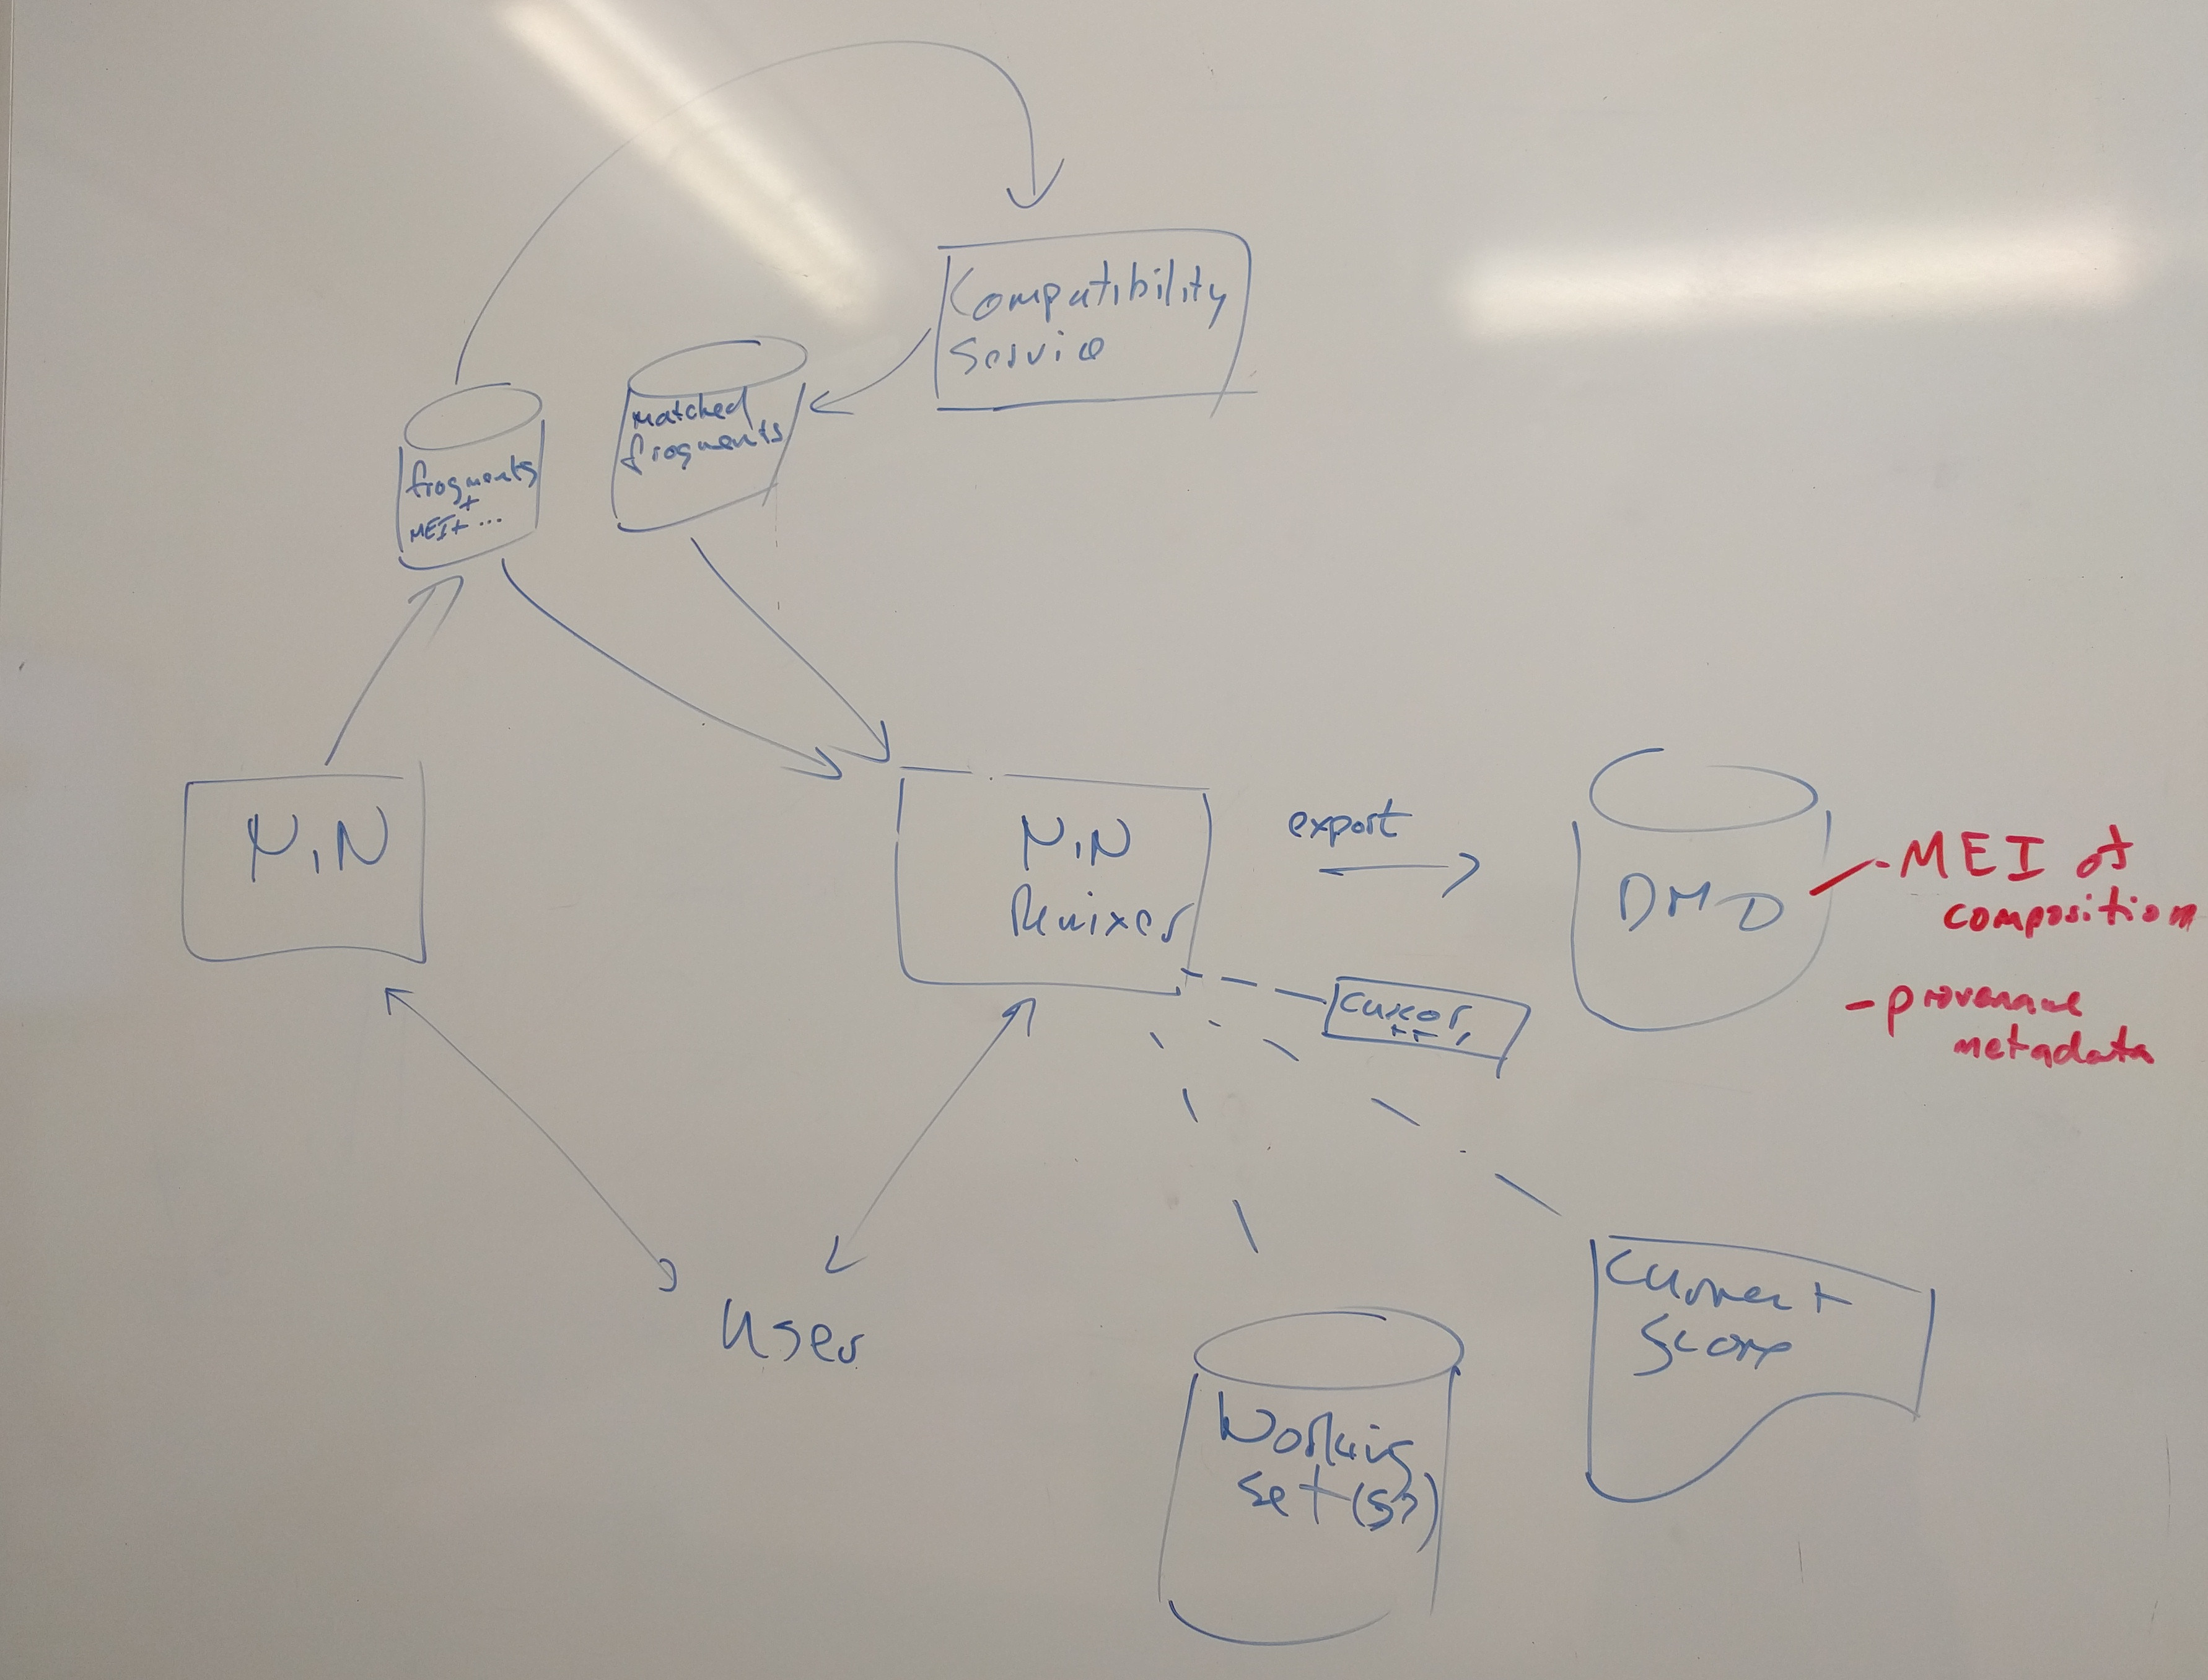 Compatibility
Service
matched
fragments
fragments
+
MEI+ ...
N
N
Remixer
export
DMD
- MEI of
composition
- provenance
metadata
User
Current
Score
Working
set(s?)